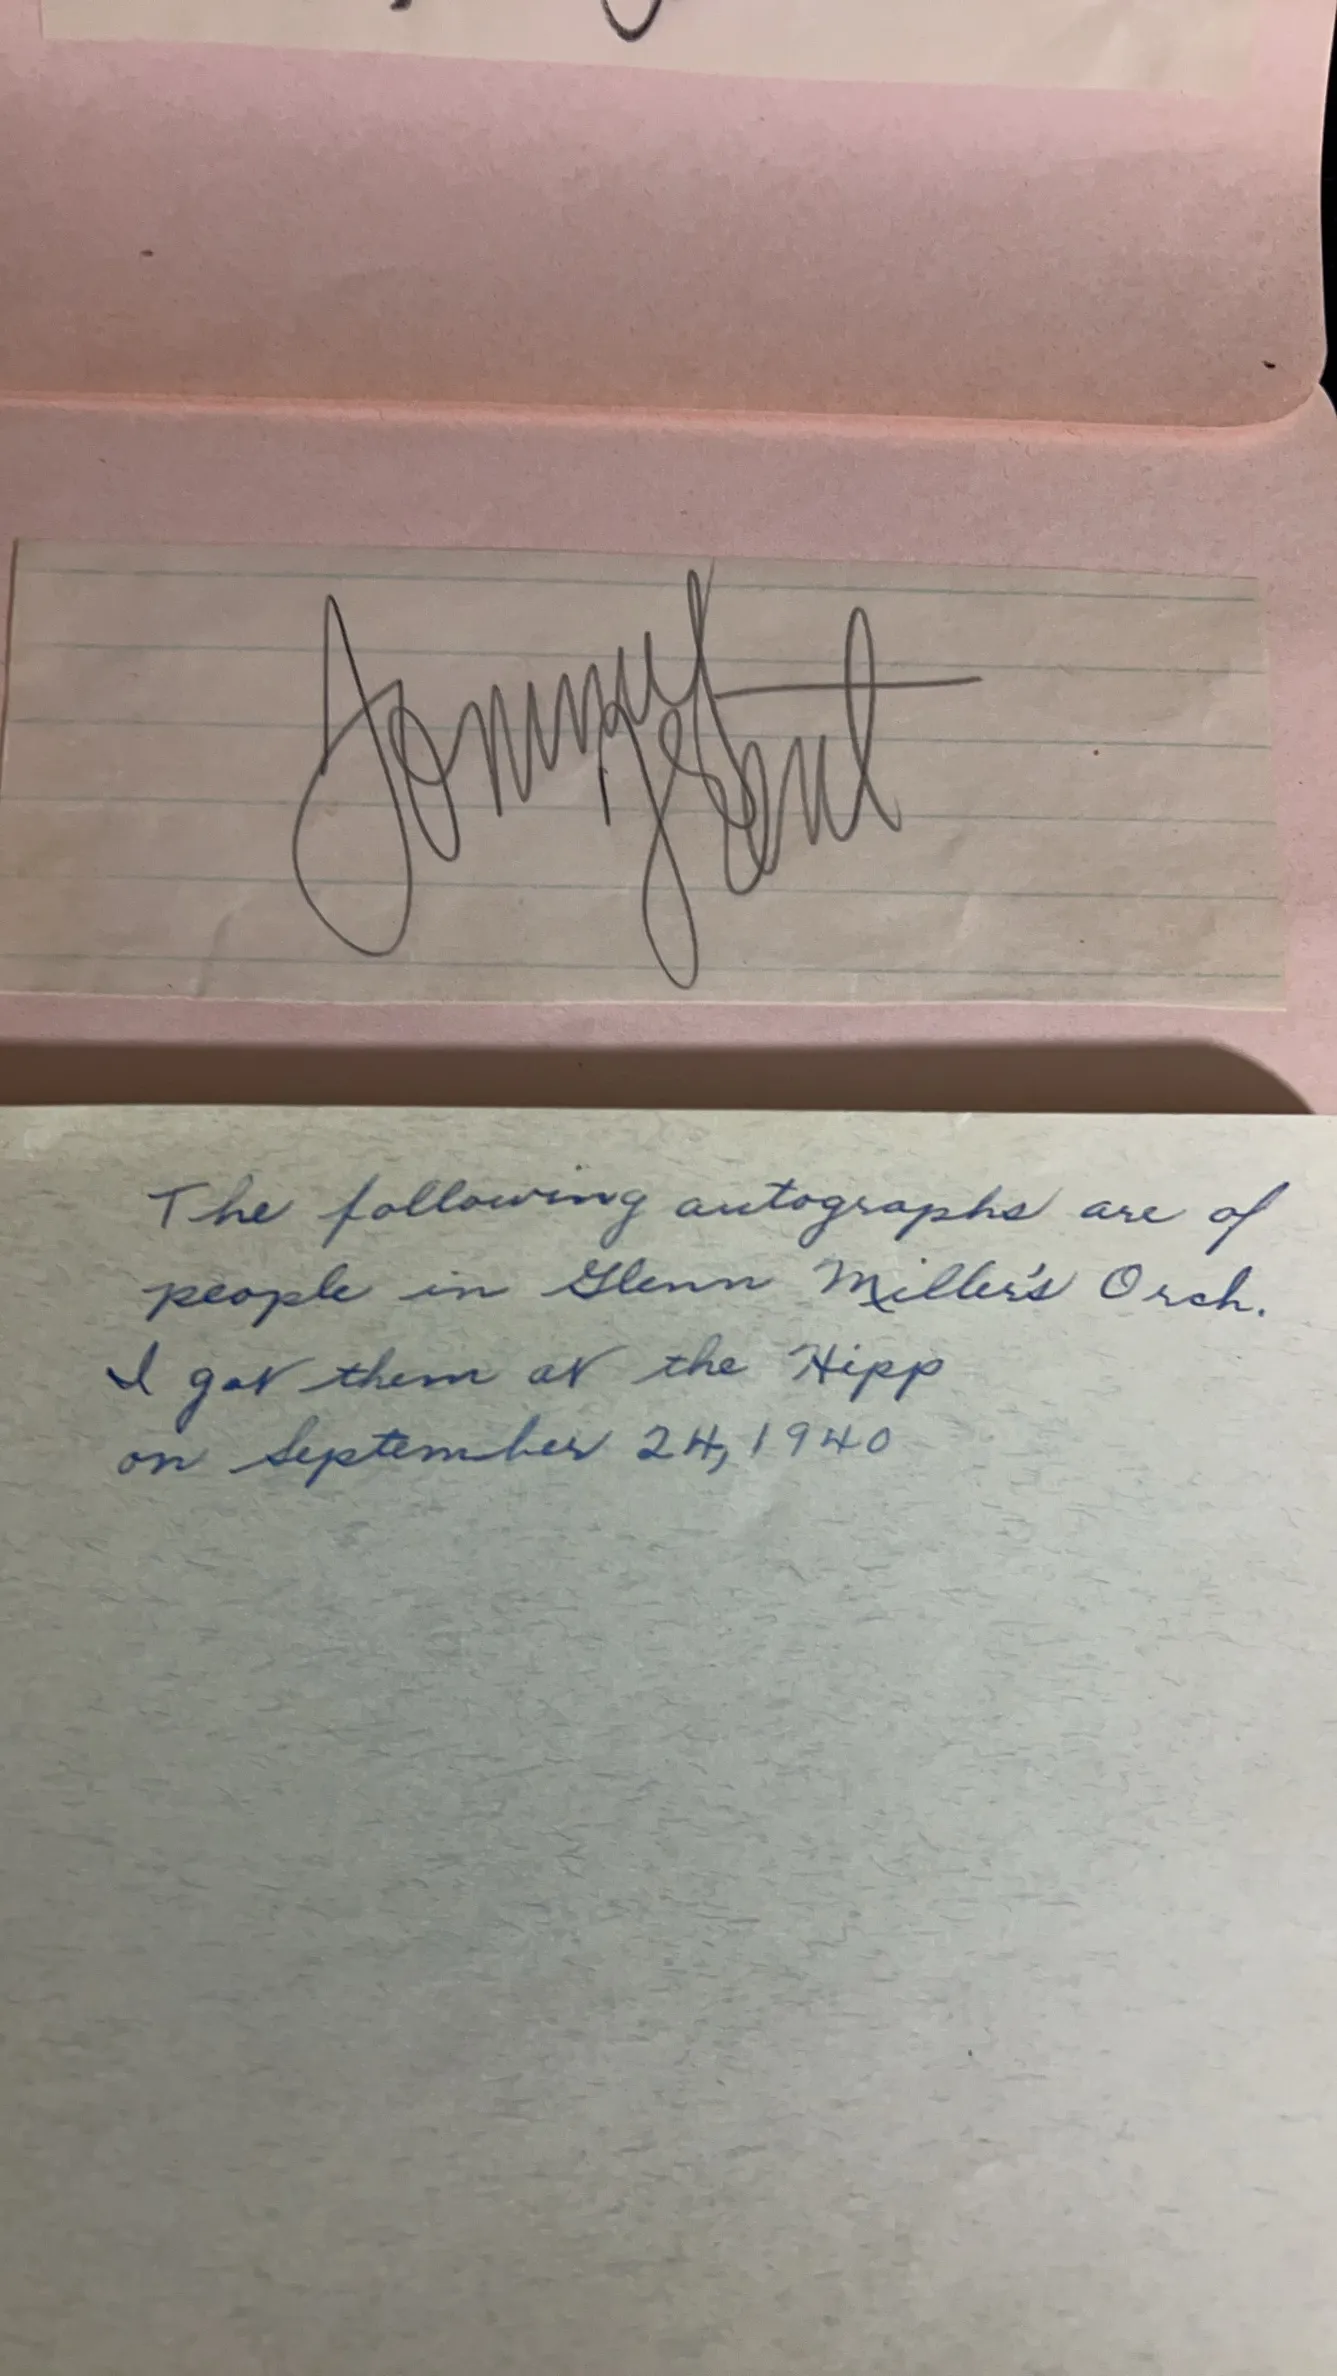 The following autographs are of
people in Glenn Miller's Orch.
I got them at the Hipp
on September 24, 1940